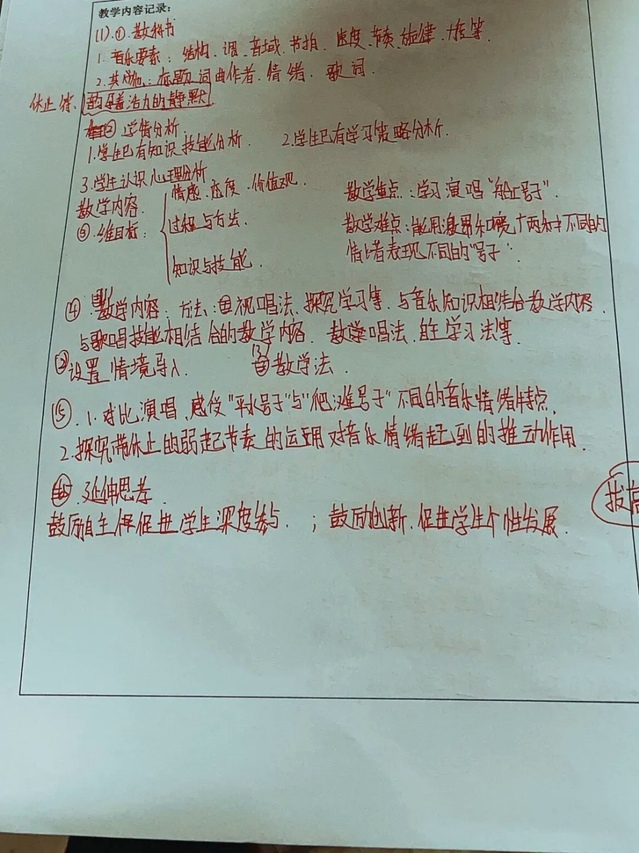 教学内容记录:
(1).①.教科书
1. 音乐要素: 结构、调、音域、节拍、速度、节奏、旋律、力度等.
2. 其他: 标题、词曲作者、情绪、歌词.
休止符、 蕴藏着活力的静默
② 学情分析
1.学生已有知识技能分析. 2.学生已有学习策略分析.
3.学生认识心理分析
教学内容. 情感、态度、价值观. 教学重点:学习演唱"船工号子".
维目标: 过程与方法. 教学难点:能用激昂和 两种不同的
情绪表现不同的"号子".
知识与技能.
④ 教学内容: 方法: 视唱法、探究学习等. 与音乐知识相结合教学内容.
与歌唱技能相结合的教学内容. 教学唱法、自主学习法等.
设置情境导入. 教学法.
⑤.1.对比演唱,感受"平水号子"与"把滩号子"不同的音乐情绪特点.
2.探究带休止的弱起节奏的运用对音乐情绪起到的推动作用.
延伸思考.
鼓励自主 促进学生深度参与. ;鼓励创新,促进学生个性发展.